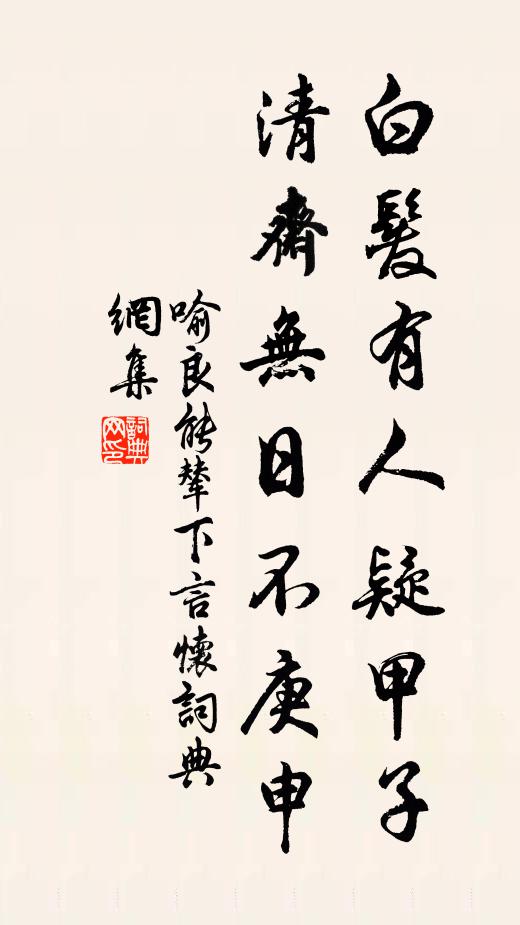 白髮有人疑甲子
清齋無日不庚申
喻良能輦下言懷詞典
網集
詞典網印